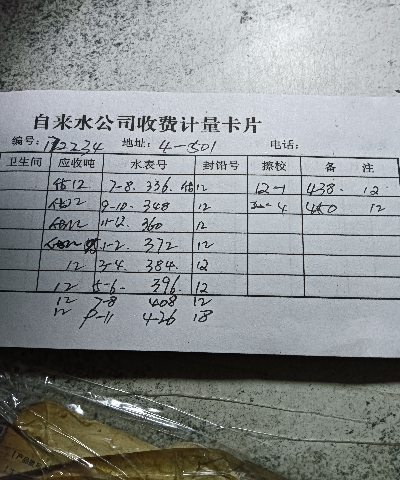 自来水公司收费计量卡片
编号: 122234 地址: 4-501 电话:
卫生间 应收吨 水表号 封铅号 擦校 备 注
估12 7-8. 336. 估12 12-1 438. 12
估12 9-10. 348 12 4 450 12
估12 11-12. 360 12
1-2. 372 12
12 3-4. 384. 12
12 5-6. 396. 12
12 7-8 408 12
12 9-11 426 18